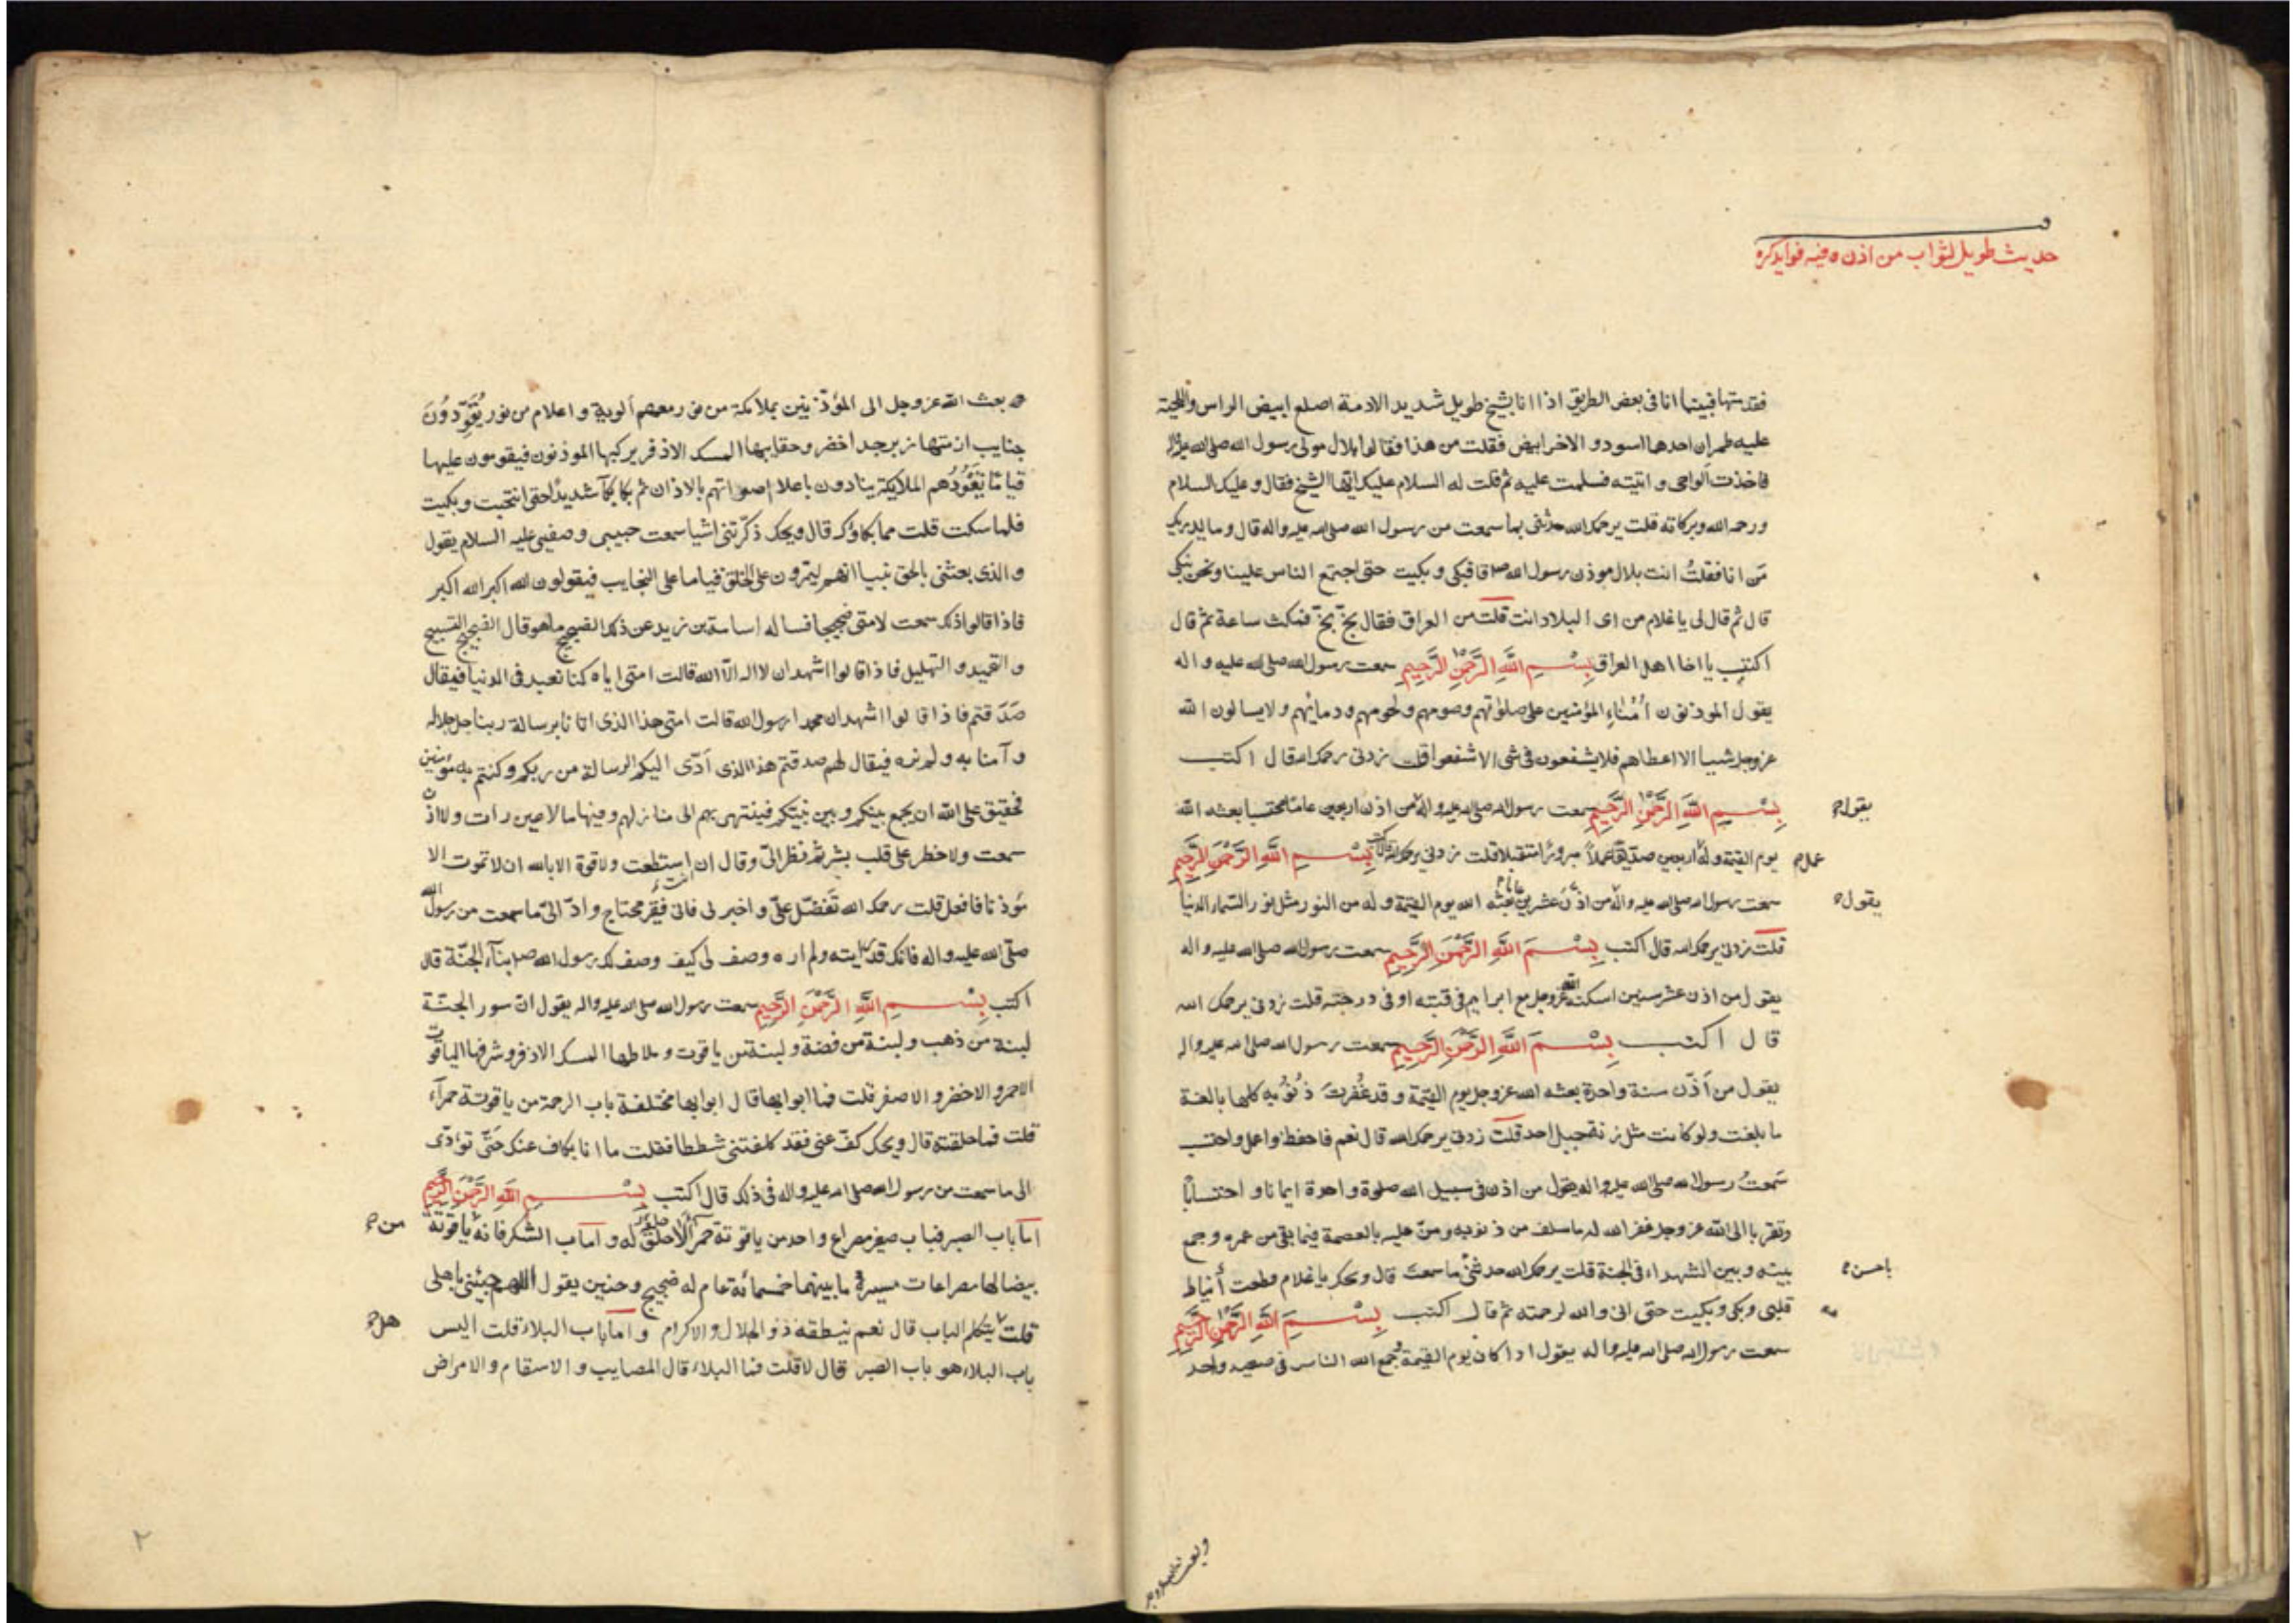 حديث طويل لثواب من اذن وفيه فوايد كره
فقدمتها فبينما انا فى بعض الطريق اذا انا بشيخ طويل شديد الادمة اصلع ابيض الراس واللحية
عليه طمران احدهما اسود و الاخر ابيض فقلت من هذا فقالوا بلال مولى رسول الله صلى الله عليه واله
فاخذت ألواحى و اتيته فسلمت عليه ثم قلت له السلام عليك ايها الشيخ فقال و عليك السلام
ورحمه الله وبركاته قلت يرحمك الله حدثنى بما سمعت من رسول الله صلى الله عليه واله قال و ما يدريك
مَن انا فقلتُ انت بلال موذن رسول الله ص قال فبكى و بكيت حتى اجتمع الناس علينا ونحن نبكى
قال ثم قال لى يا غلام من اى البلاد انت قلت من العراق فقال بخّ بخّ فمكث ساعة ثم قال
اكتب يا اخا اهل العراق بِسْمِ اللَّهِ الرَّحْمٰنِ الرَّحِيمِ سمعت رسول الله صلى الله عليه و اله
يقول الموذنون أمناء المؤمنين على صلوتهم وصومهم ولحومهم ودمائهم ولا يسالون الله
عزوجل شييا الا اعطاهم فلا يشفعون فى شى الا شفعوا قلت زدنى يرحمك الله قال اكتب
بِسْمِ اللَّهِ الرَّحْمٰنِ الرَّحِيمِ سمعت رسول الله صلى الله عليه واله من اذن اربعين عاما محتسبا بعثه الله
يقول
يوم القيمة وله اربعين صدّيقا عملاً مبرورًا متقبلا قلت زدنى يرحمك الله قال اكتب بِسْمِ اللَّهِ الرَّحْمٰنِ الرَّحِيمِ
عمل
سمعت رسول الله صلى الله عليه واله من اذّن عشرين عاما بعثه الله يوم القيمة و له من النور مثل نور السماء الدنيا
يقول
قلت زدنى يرحمك الله قال اكتب بِسْمِ اللَّهِ الرَّحْمٰنِ الرَّحِيمِ سمعت رسول الله صلى الله عليه و اله
يقول من اذن عشر سنين اسكنه الله عزوجل مع ابراهيم فى قبته او فى درجته قلت زدنى يرحمك الله
قال اكتب بِسْمِ اللَّهِ الرَّحْمٰنِ الرَّحِيمِ سمعت رسول الله صلى الله عليه واله
يقول من أذّن سنة واحدة بعثه الله عزوجل يوم القيمة و قد غُفرت ذُنُوبه كلها بالغة
ما بلغت ولو كانت مثل زنة جبل احد قلت زدنى يرحمك الله قال نعم فاحفظ واعمل واحتسب
سمعتُ رسول الله صلى الله عليه واله يقول من اذن فى سبيل الله صلوة واحدة ايمانا و احتسابًا
وتقربا الى الله عزوجل غفر الله له ما سلف من ذنوبه و منّ عليه بالعصمة فيما بقى من عمره و جمع
بينه وبين الشهداء فى الجنة قلت يرحمك الله حدثنى ما سمعتَ قال ويحك يا غلام قطعت أنياط
باحسن
قلبى وبكى وبكيت حتى انى والله لرحمته ثم قال اكتب بِسْمِ اللَّهِ الرَّحْمٰنِ الرَّحِيمِ
سمعت رسول الله صلى الله عليه واله يقول اذا كان يوم القيمة وجمع الله الناس فى صعيد واحد
بعث الله عزوجل الى المؤذنين بملائكة من نور معهم ألوية و اعلام من نور يُقَوِّدُونَ
جنايب ازمتها زبرجد اخضر وحقايبها المسك الاذفر يركبها الموذنون فيقومون عليها
قياما تَقُودُهم الملايكة ينادون باعلا اصواتهم بالاذان ثم بكا بكاءً شديدًا حتى انتحبت و بكيت
فلما سكت قلت مما بكاؤك قال ويحك ذكّرتنى اشيا سمعت حبيبى وصفيى عليه السلام يقول
و الذى بعثنى بالحق نبيا انهم ليمرون على الخلق قياما على النجايب فيقولون الله اكبر الله اكبر
فاذا قالوا ذلك سمعت لامتى ضجيجا فساله اسامة بن زيد عن ذلك الضجيج ما هو قال الضجيج التسبيح
و التحميد و التهليل فاذا قالوا اشهد ان لا اله الا الله قالت امتى اياه كنا نعبد فى الدنيا فيقال
صَدَقتم فاذا قالوا اشهد ان محمدا رسول الله قالت امتى هذا الذى اتانا برسالة ربنا جل جلاله
و آمنا به ولم نره فيقال لهم صدقتم هذا الذى أدّى اليكم الرسالة من ربكم وكنتم به مؤمنين
فحقيق على الله ان يجمع بينكم و بين نبيّكم فينتهى بهم الى منازلهم وفيها ما لا عين رات ولا اذن
سمعت ولا خطر على قلب بشر ثم نظر الىّ وقال ان استطعت ولا قوة الا بالله ان لا تموت الا
مؤذنا فافعل قلت يرحمك الله تَفضّل علىّ و اخبرنى فانى فقير محتاج و ادّ الىّ ما سمعت من رسول الله
صلى الله عليه واله فانك قد رايته ولم اره وصف لى كيف وصف لك رسول الله ص بناء الجنّة قال
اكتب بِسْمِ اللَّهِ الرَّحْمٰنِ الرَّحِيمِ سمعت رسول الله صلى الله عليه واله يقول انّ سور الجنّة
لبنة من ذهب و لبنة من فضة و لبنة من ياقوت و ملاطها المسك الاذفر و شرفها الياقوت
الاحمر و الاخضر و الاصفر قلت فما ابوابها قال ابوابها مختلفة باب الرحمة من ياقوتة حمراء
قلت فما حلقته قال ويحك كفّ عنى فقد كلفتنى شططا فقلت ما انا بكاف عنك حتّى تؤدّى
الى ما سمعت من رسول الله صلى الله عليه واله فى ذلك قال اكتب بِسْمِ اللَّهِ الرَّحْمٰنِ الرَّحِيمِ
امّا باب الصبر فباب صغير مصراع واحد من ياقوتة حمراء لا حلق له و اما باب الشكر فانه ياقوتة
من
بيضا لها مصراعان مسيرة ما بينهما خمسمائة عام له ضجيج وحنين يقول اللهم جئنى باهلى
قلت يتكلم الباب قال نعم ينطقه ذو الجلال والاكرام و اما باب البلاء قلت اليس
هل
باب البلاء هو باب الصبر قال لا قلت فما البلاء قال المصايب و الاسقام و الامراض
٢